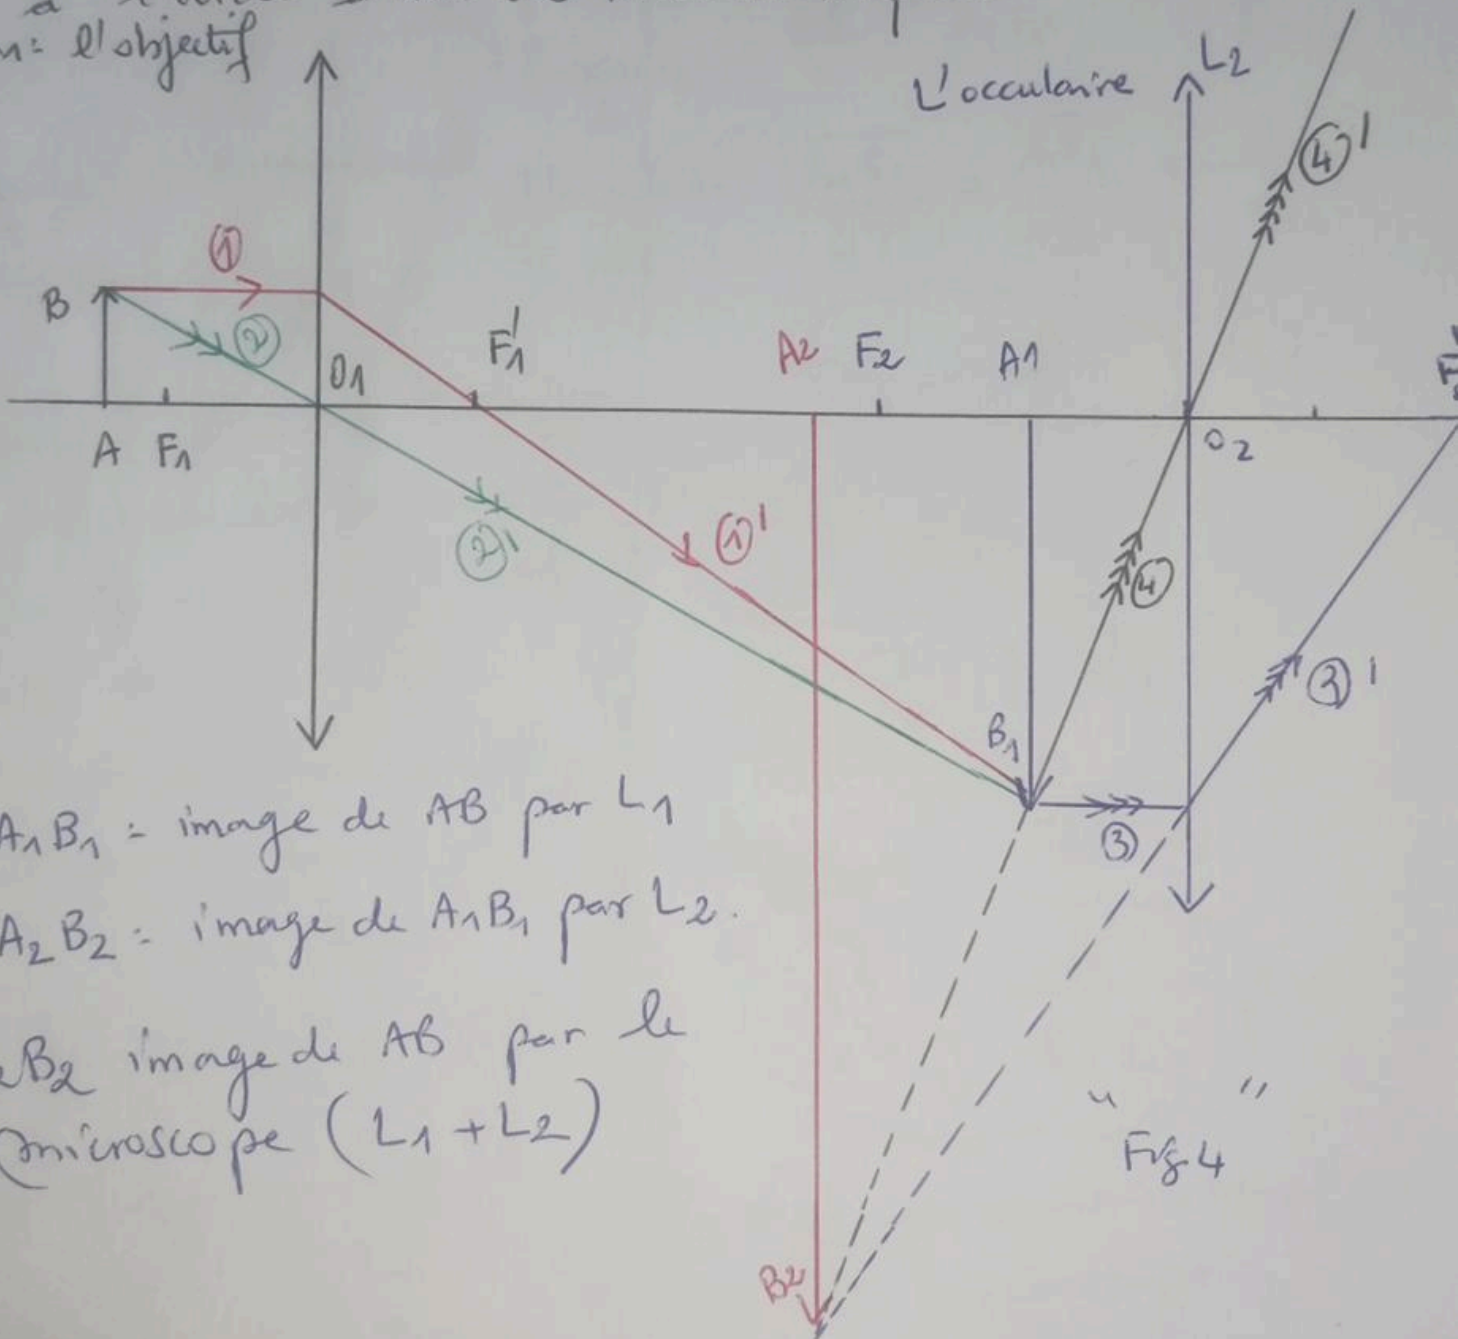 l'objectif
L'occulaire L2
④'
①
B
②
F1'
A2 F2 A1
O1
A F1
O2
①'
②'
④
③'
B1
A1B1 = image de AB par L1
③
A2B2 = image de A1B1 par L2.
B2 image de AB par le
microscope (L1 + L2)
" Fig 4 "
B2